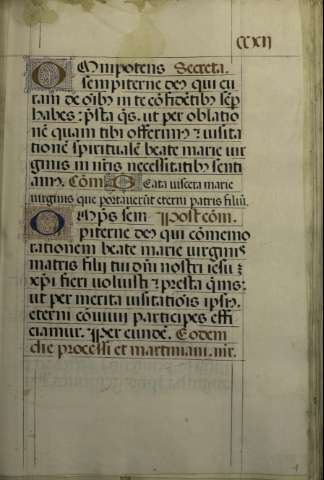 CCXII
Omnipotens Secreta.
sempiterne deꝰ qui cu
ram de oĩbꝰ in te cõfidẽtibꝰ sẽp
habes: p̃sta q̃s. ut per oblatio
nẽ quam tibi offerimꝰ ⁊ uisita
tionẽ spiritualẽ beate marie uir
ginis in nr̃is necessitatibꝰ senti
amꝰ. Cõmo Beata uiscera marie
uirginis que portauerũt eterni patris filiũ.
Omp̃s sem Postcõm.
piterne deꝰ qui cõmemo
rationem beate marie uirginis
matris filii tui dñi nostri iesu ⁊
xp̃i fieri uoluisti ⁊ presta q̃ms:
ut per merita uisitatiõis ipsiꝰ.
eterni cõuiuii participes effi
ciamur. Per eundẽ. Eodem
die processi et martiniani. mr̃.